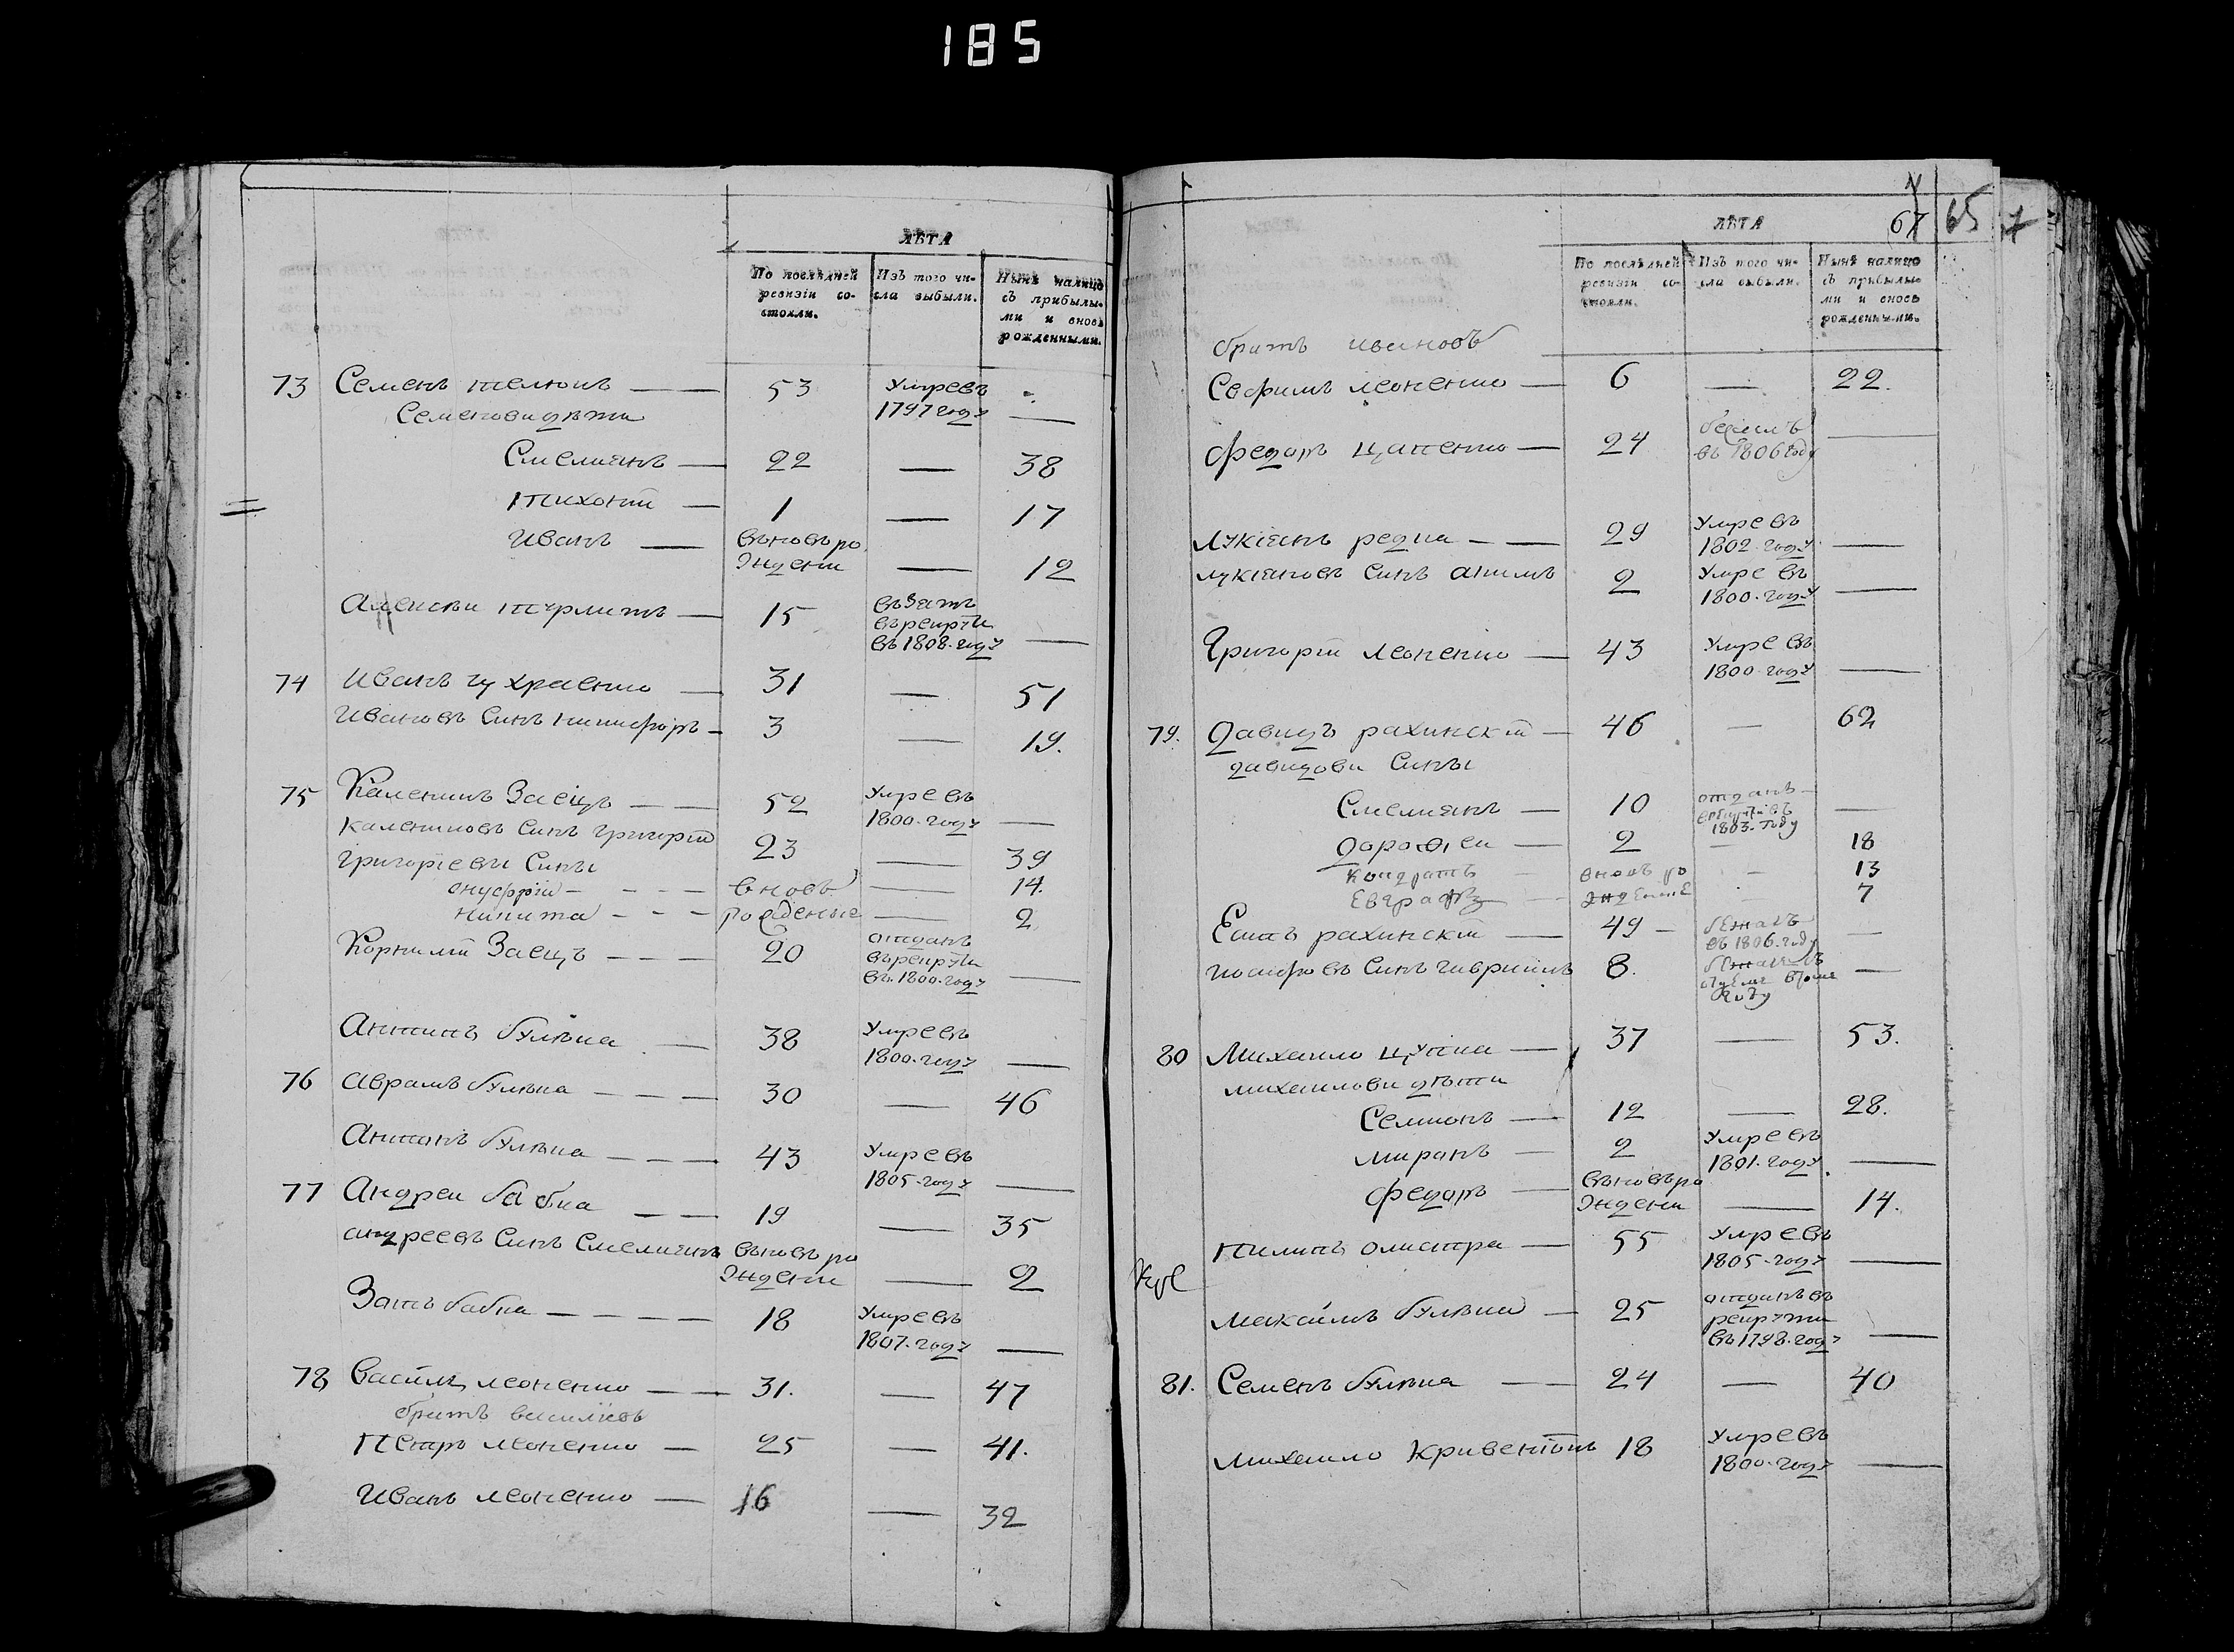 185
ЛѢТА
По послѣдней ревизіи со-стояли.
Изъ того чи-сла выбыли.
Нынѣ налицо съ прибылы-ми и вновь рожденными.
73 Семенъ 53 Умре въ 1797 году —
Семенови дѣти
Емелиянъ — 22 — 38
Тихонъ — 1 — 17
Иванъ — вновь рожденъ — 12
Алексѣй 15 въ 1808. году —
74 Иванъ — 31 — 51
Ивановъ Синъ Никифоръ — 3 — 19.
75 Каленикъ Заецъ — — 52 Умре въ 1800. году —
Калениковъ Синъ Григорій 23 — 39
Григоріеви Сины
Онуфрій — — — — вновь — 14.
Никита — — — рожденые — 2
Корнилій Заецъ — — — 20 отданъ въ рекрути въ 1800. году —
Антипъ булвка — 38 Умре въ 1800. году —
76 Аврамъ булвка — — — 30 — 46
Антонъ булвка — — — 43 Умре въ 1805. году —
77 Андрей бабка — — 19 — 35
Андреевъ Синъ Емелиянъ вновь рожденъ — 2
бабка — — — — 18 Умре въ 1807. году —
78 Василь леоненко — — 31. — 47
братъ василіевъ
Петръ леоненко — 25 — 41.
Иванъ леоненко — 16 — 32
67 65
ЛѢТА
По послѣдней ревизіи со-стояли.
Изъ того чи-сла выбыли.
Нынѣ налицо съ прибылы-ми и вновь рожденными.
братъ ивановъ
Евфимъ леоненко — 6 — 22.
Федоръ цапенко — 24 бежалъ въ 1806 году —
Лукіянъ редка — — 29 Умре въ 1802. году —
лукіяновъ Синъ акимъ 2 Умре въ 1800. году —
Григорій леоненко — 43 Умре въ 1800. году —
79. Давидъ рахинскій — 46 — 62
давидови Сины
Емелиянъ — 10 отданъ 1803. году —
Дорофей — 2 — 18
Кондратъ — вновь ро — 13
Евграфъ — жденые 7
рахинскій — 49 — бежалъ въ 1806. году —
Синъ гаврилъ 8. бежалъ —
80 Михаило цупка — 37 — 53.
михаилови дѣти
Семионъ — 12 — 28.
миронъ — 2 Умре въ 1801. году. —
федоръ — вновь рожденъ — 14.
Пилипъ — 55 Умре въ 1805. году —
Максимъ булвка — 25 отданъ въ рекрути въ 1798. году —
81. Семенъ булвка — 24 — 40
михаило 18 Умре въ 1800. году —